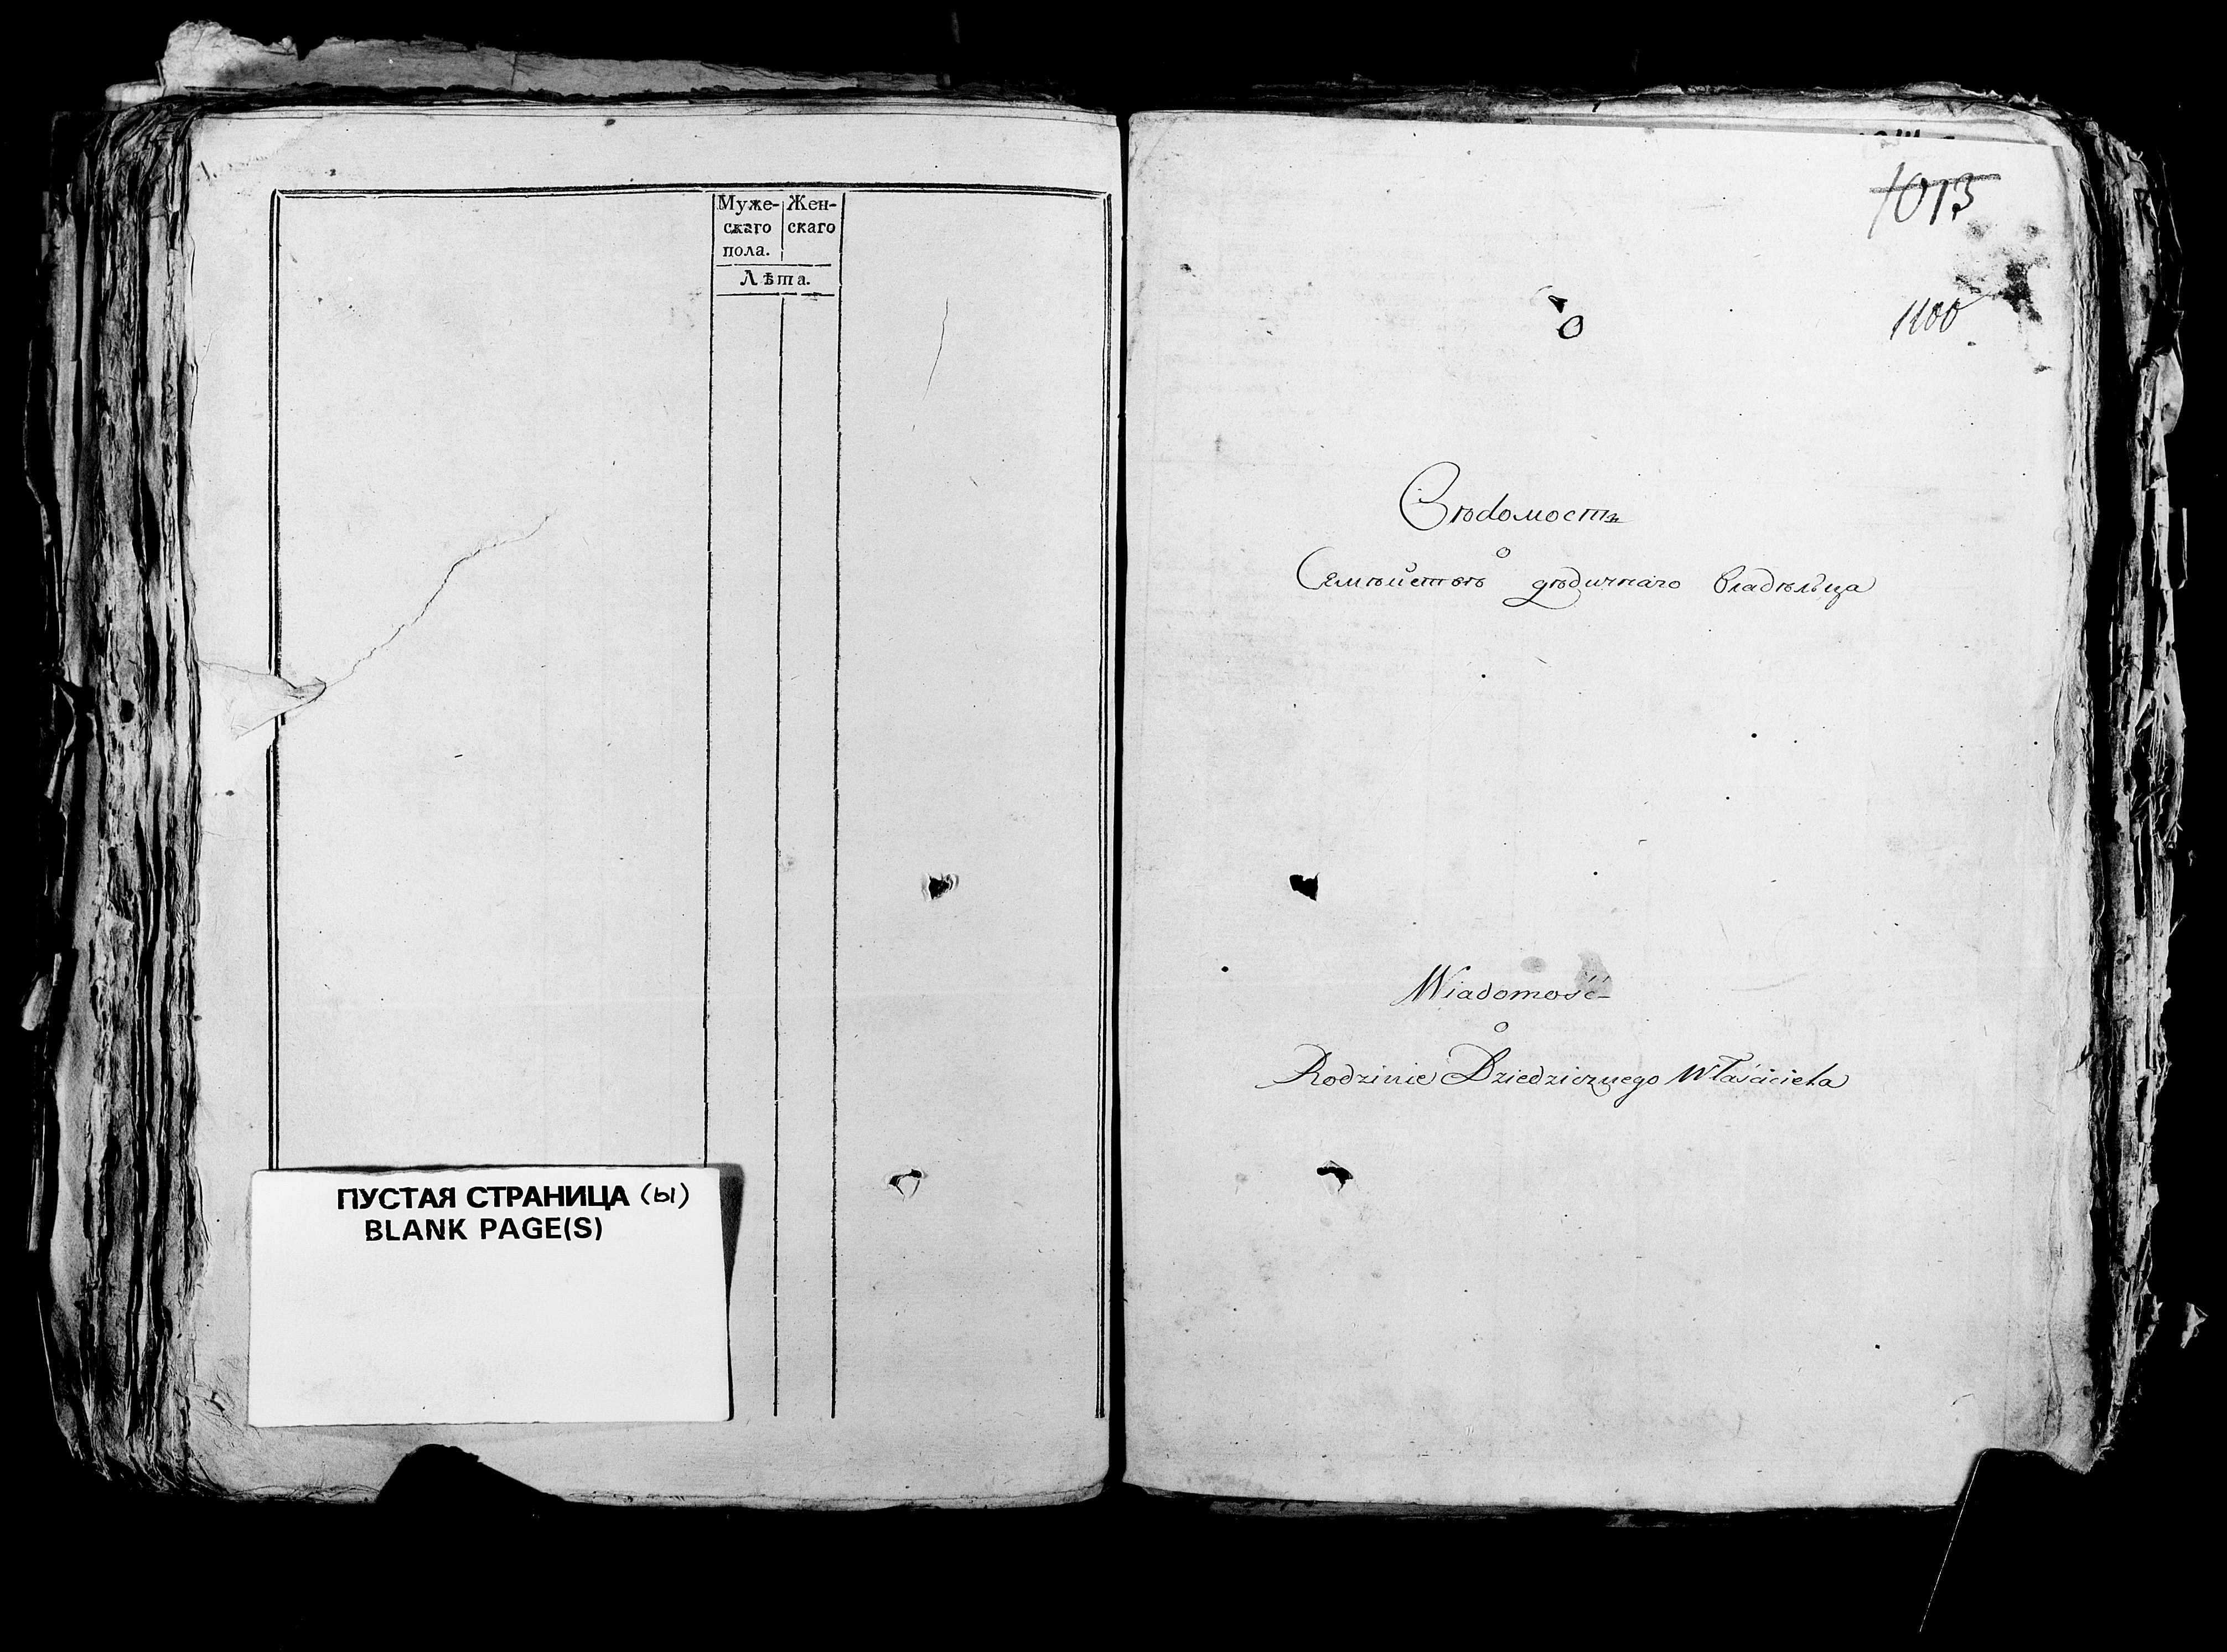 Муже- Жен-
скаго скаго
пола.
Лѣта.
ПУСТАЯ СТРАНИЦА (Ы)
BLANK PAGE(S)
1013
1100
Вѣдомость
о
Семѣйствѣ дѣдичнаго владѣльца
Wiadomość
o
Rodzinie Dziedzicznego Właściciela